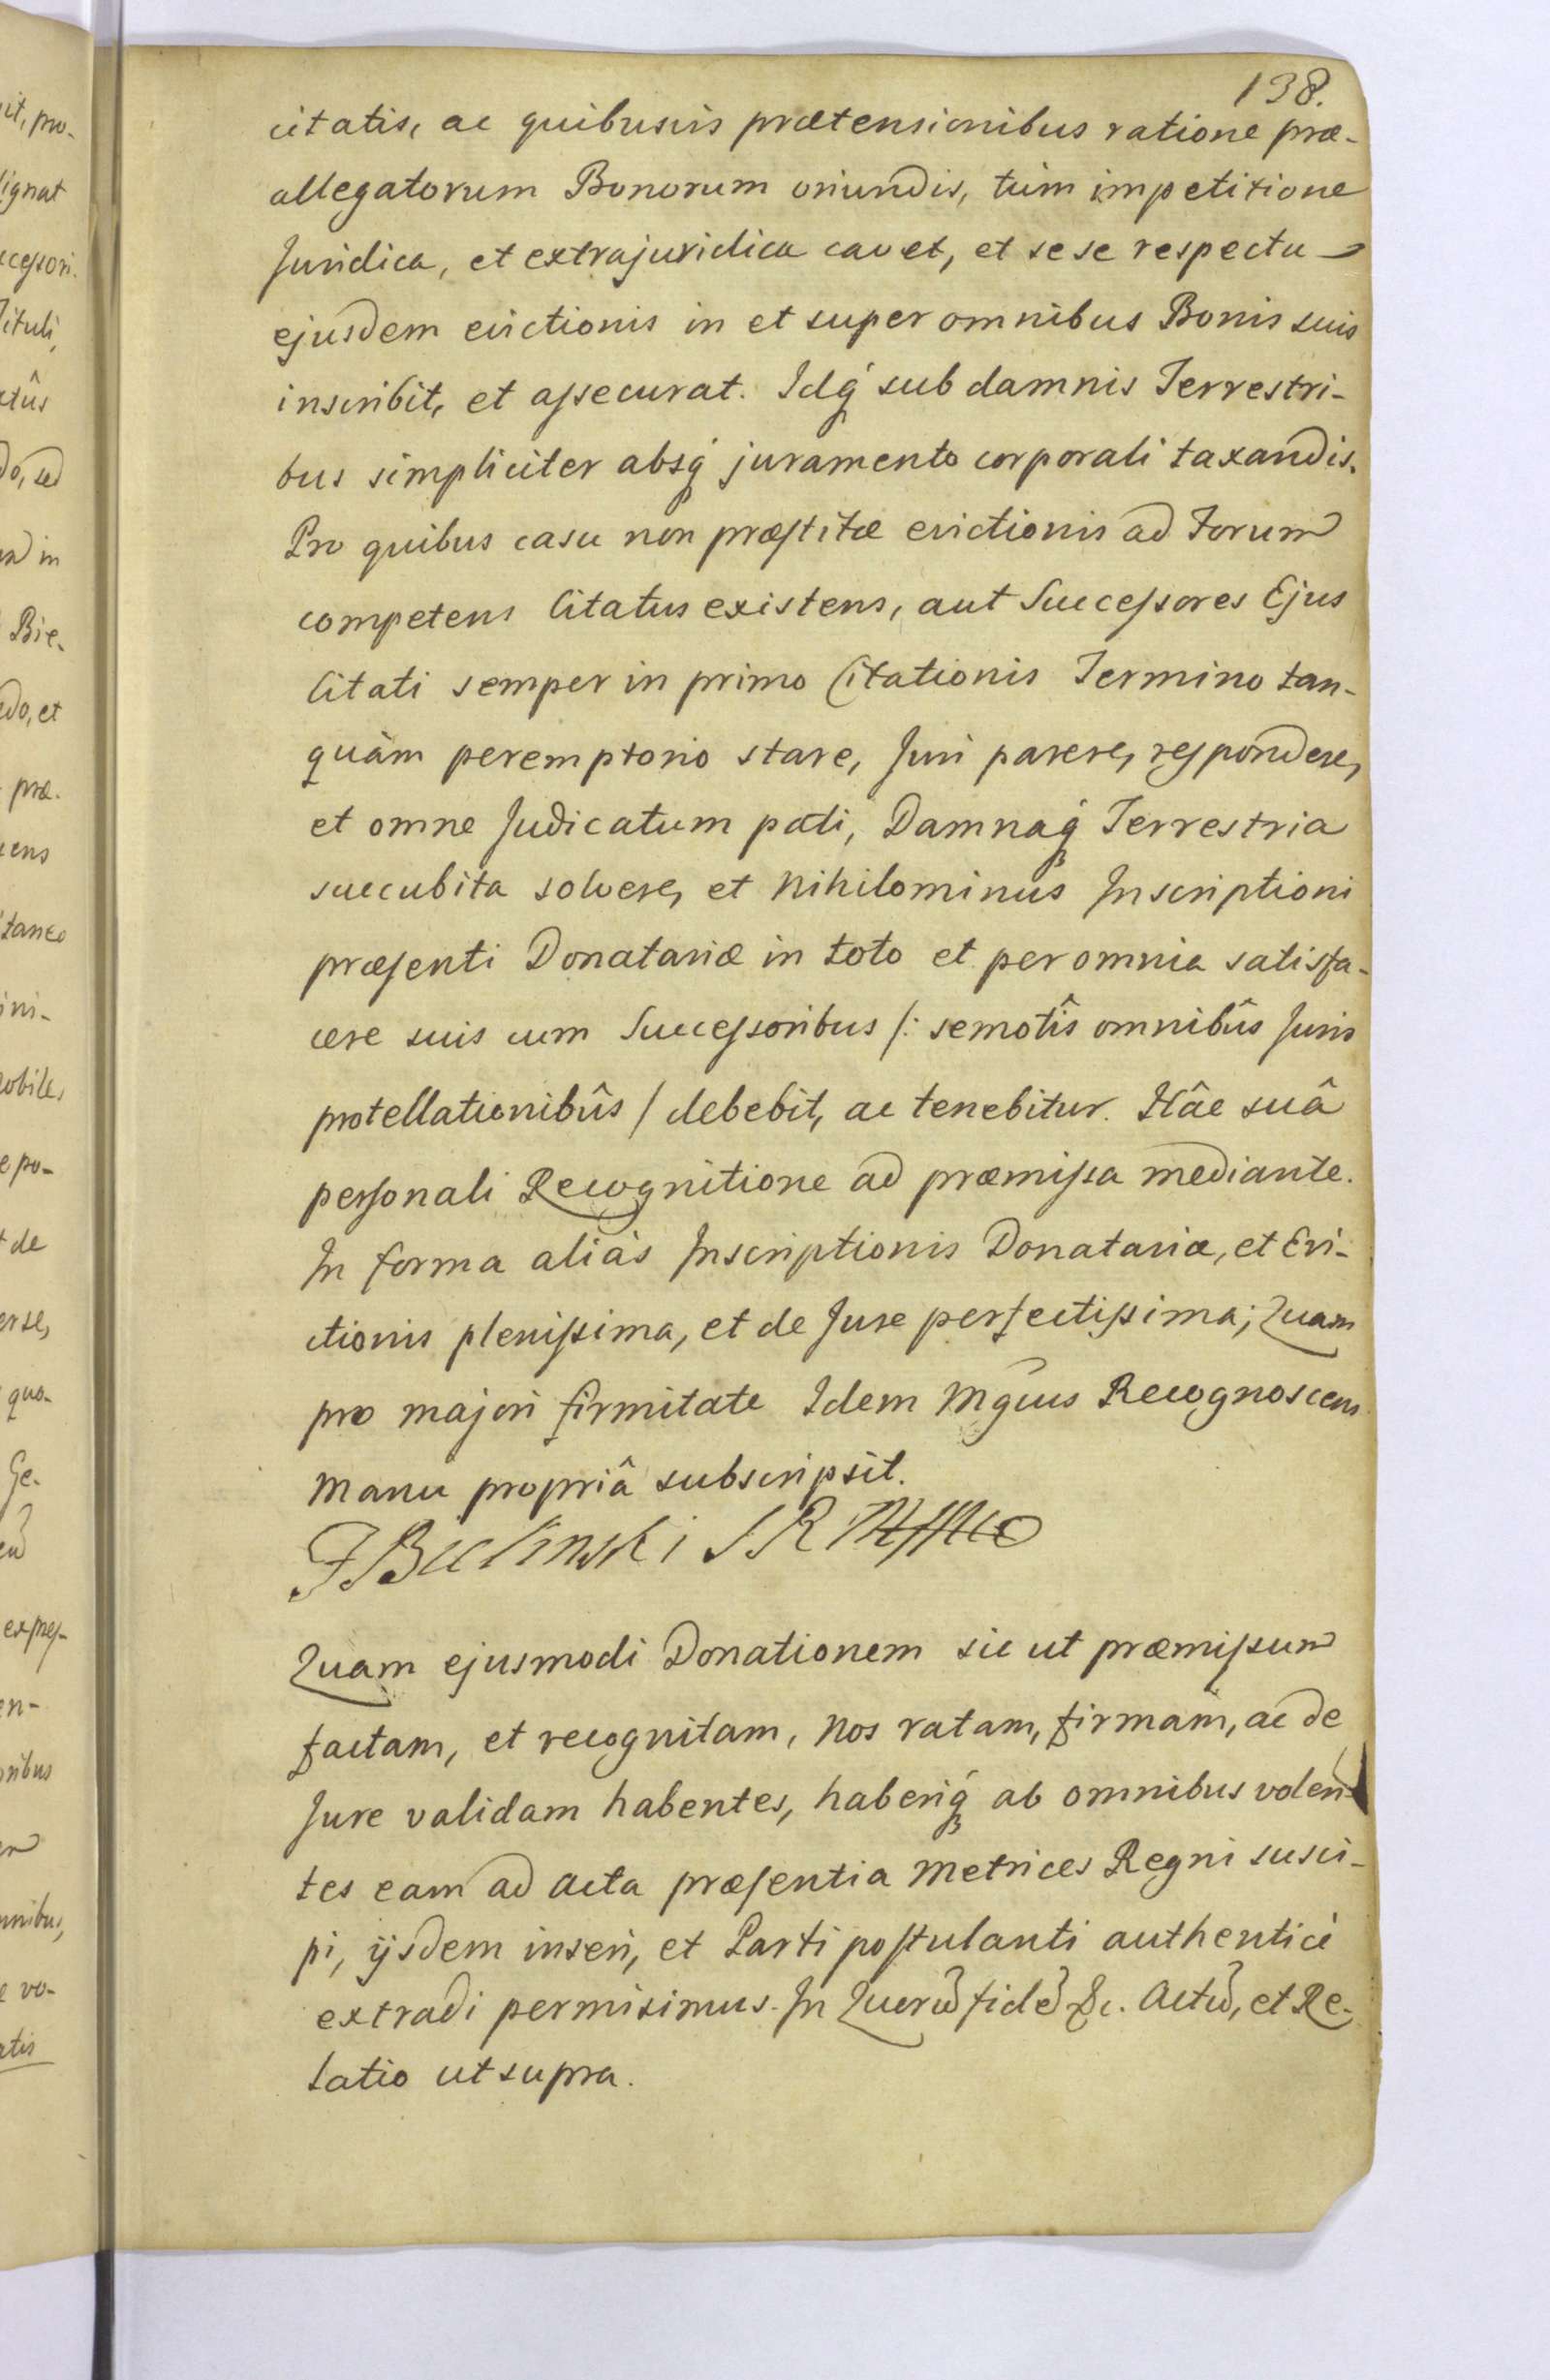 138.
citatis, ac quibusvis prætensionibus ratione præ-
allegatorum Bonorum oriundis, tùm impetitione
Juridica, et extrajuridica cavet, et sese respectu
ejusdem evictionis in et super omnibus Bonis suis
inscribit, et assecurat. Idq́ sub damnis Terrestri-
bus simpliciter absq́ juramento corporali taxandis.
Pro quibus casu non præstitæ evictionis ad Forum
competens Citatus existens, aut Successores Ejus
Citati semper in primo Citationis Termino tan-
quàm peremptorio stare, Juri parere, respondere,
et omne Judicatum pati, Damnaq́ Terrestria
succubita solvere, et nihilominùs Inscriptioni
præsenti Donatariæ in toto et per omnia satisfa-
cere suis cum Successoribus /: semotîs omnibûs Juris
protellationibûs / debebit, ac tenebitur. Hâc suâ
personali Recognitione ad præmissa mediante.
In forma aliàs Inscriptionis Donatariæ, et Evi-
ctionis plenissima, et de Jure perfectissima; Quam
pro majori firmitate Idem Mgcus Recognoscens
manu propriâ subscripsit.
F Bielinski
Quam ejusmodi Donationem sic ut præmissum
factam, et recognitam, Nos ratam, firmam, ac de
Jure validam habentes, haberiq́ ab omnibus volen-
tes eam ad Acta præsentia Metrices Regni susci-
pi, ijsdem inseri, et Parti postulanti authenticè
extradi permisimus. In Quorũ fidẽ &c. Actũ, et Re-
latio ut supra.
it, pro-
ignat
ccessori.
Tituli,
do, sed
in
Bie-
do, et
præ-
ens
taneo
ini-
obile,
e po-
de
erse,
quo-
Ge-
expres-
en-
oribus
mnibus,
e vo-
atis